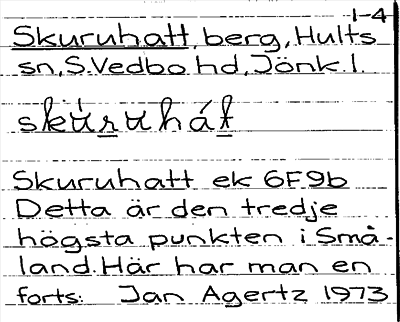 1-4
Skuruhatt, berg, Hults
sn, S. Vedbo hd, Jönk. l.
skúru há t
Skuruhatt ek 6F9b
Detta är den tredje
högsta punkten i Små-
land. Här har man en
forts: Jan Agertz 1973